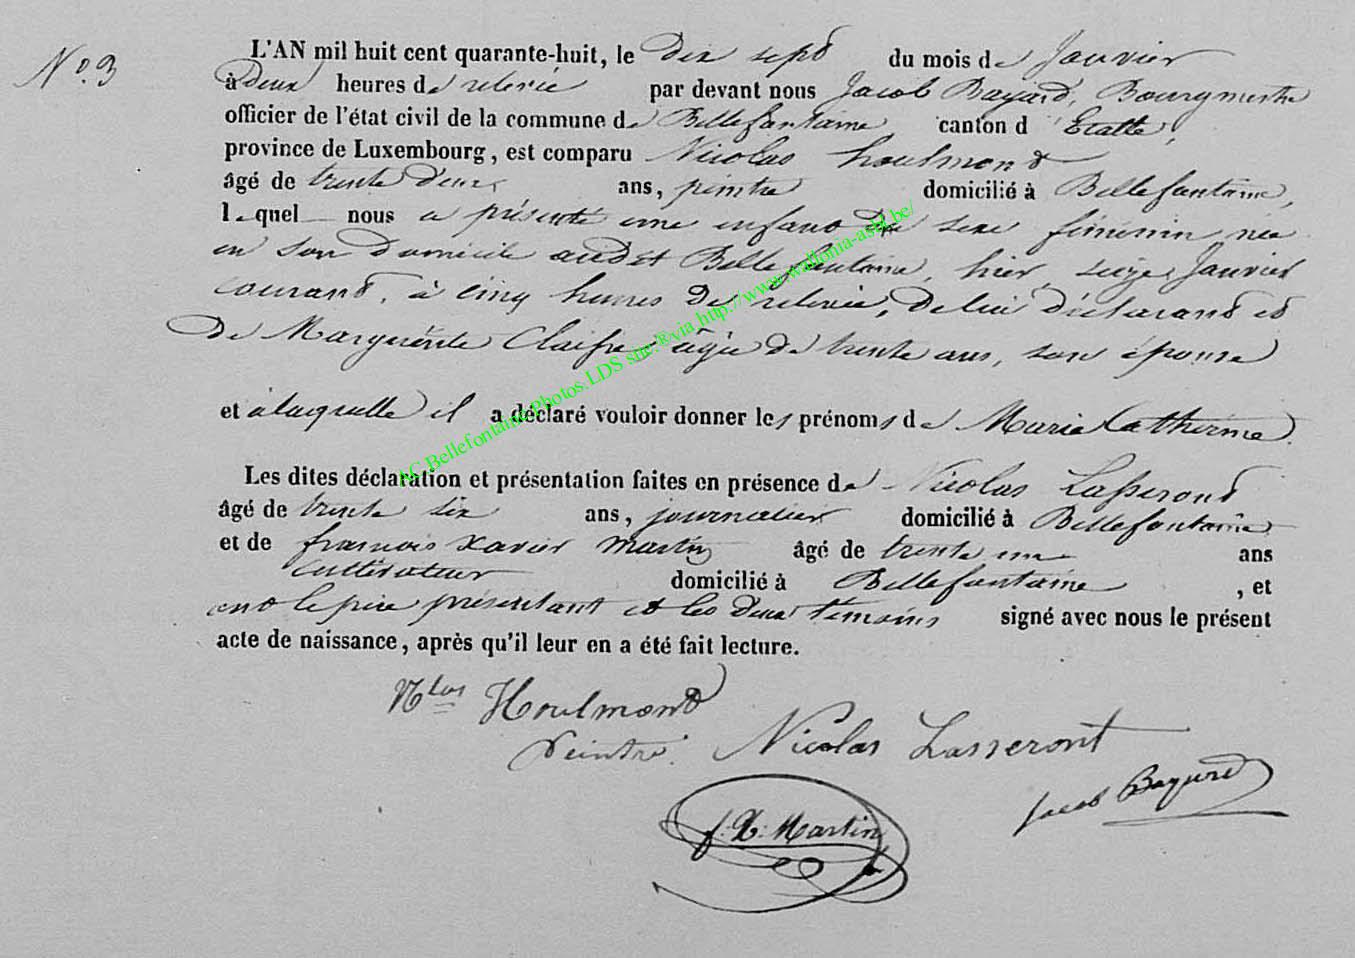 N.° 3
L'AN mil huit cent quarante-huit, le dix sept du mois de Janvier
à deux heures de relevée par devant nous Jacob Bayard, Bourgmestre
officier de l'état civil de la commune de Bellefontaine canton d'Etalle,
province de Luxembourg, est comparu Nicolas houlmond
âgé de trente deux ans, peintre domicilié à Bellefontaine,
lequel nous a présenté une enfant du sexe féminin née
en son domicile audit Bellefontaine, hier, seize Janvier
courant, à cinq heures de relevée, de lui déclarant et
de Marguerite Claisse âgée de trente ans, son épouse
et à laquelle il a déclaré vouloir donner les prénoms de Marie Catherine.
Les dites déclaration et présentation faites en présence de Nicolas Lasseront
âgé de trente six ans, journalier domicilié à Bellefontaine
et de francois Xavier Martin âgé de trente un ans
cultivateur domicilié à Bellefontaine, et
ont le père présentant et les deux témoins signé avec nous le présent
acte de naissance, après qu'il leur en a été fait lecture.
Nlas Houlmond
Peintre. Nicolas Lasseront
Jacob Bayard
f. X. Martin
AC Bellefontaine Photos LDS site ®via http://www.wallonia-asbl.be/